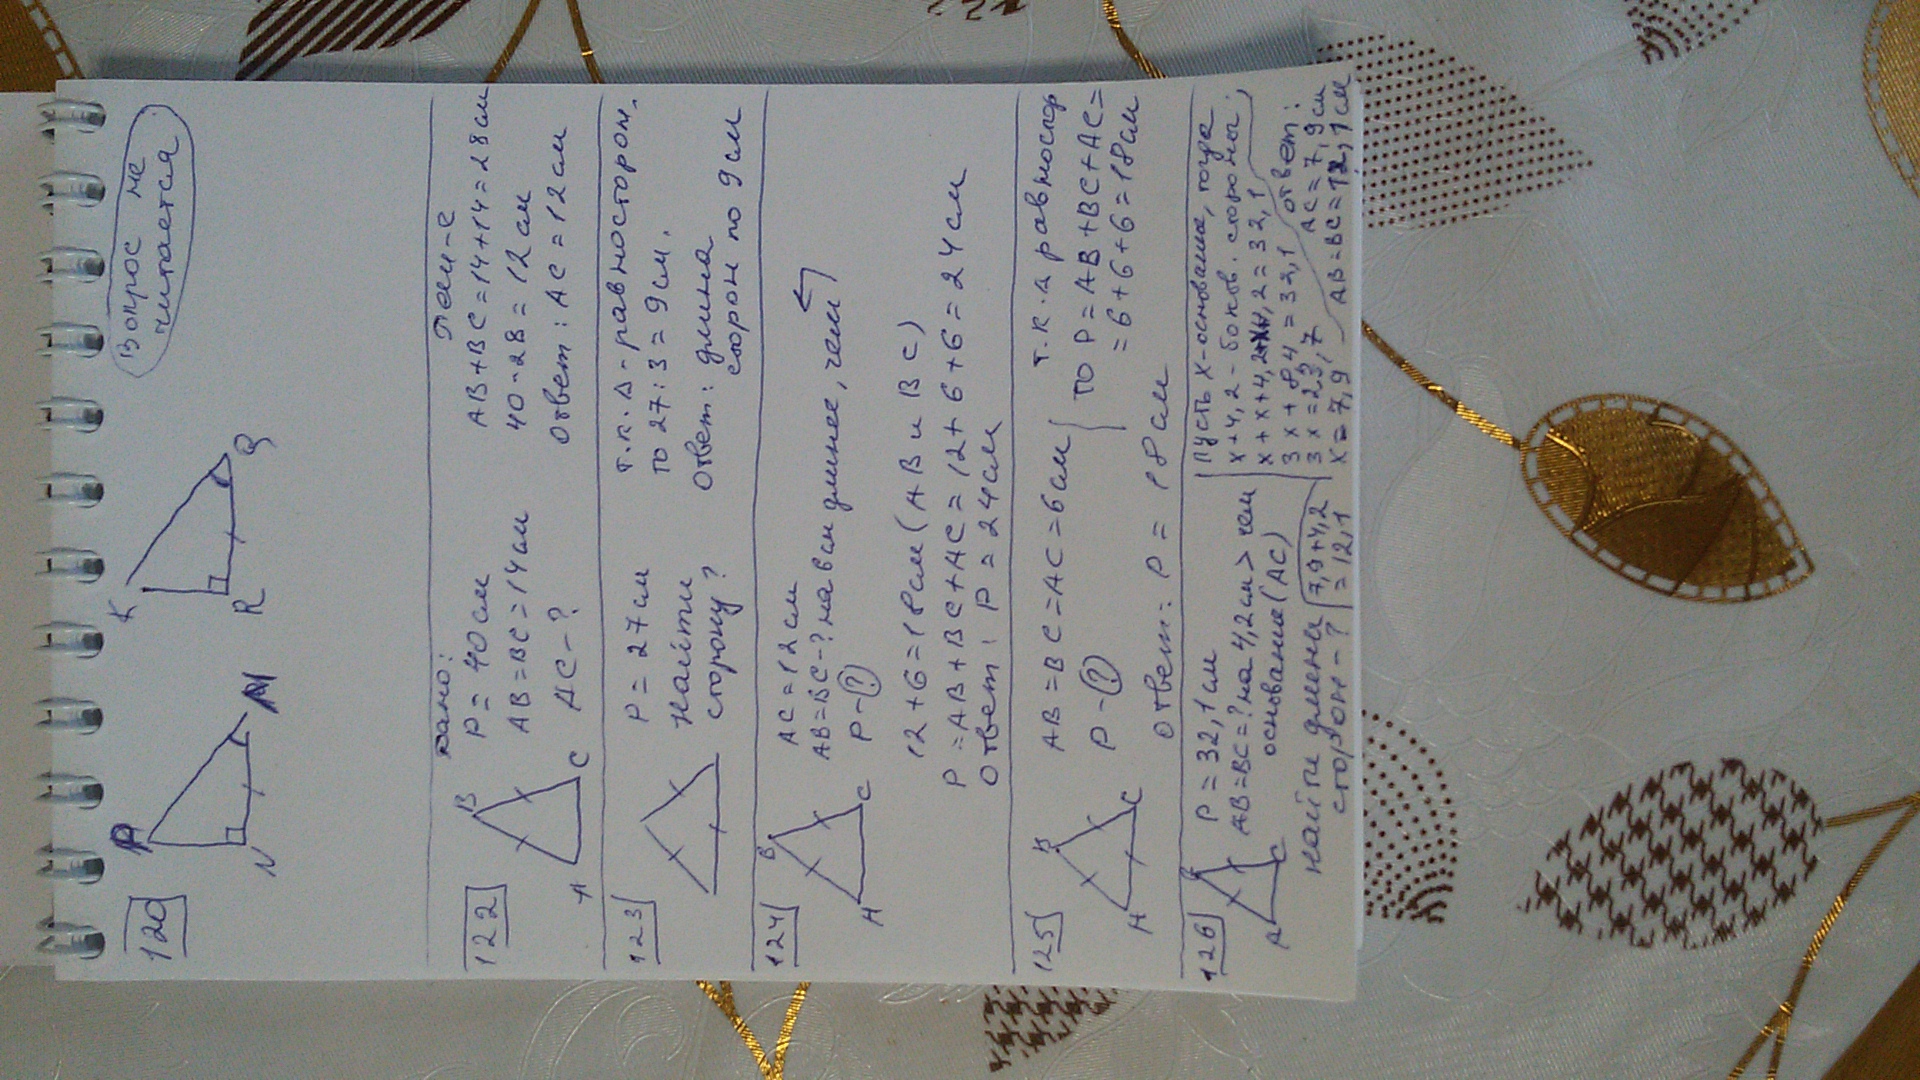 120
Вопрос не
читается
К
R
Q
N
M
122
Дано:
P = 40 см
AB=BC=14см
AC-?
B
A
C
Реш-е
AB+BC=14+14=28см
40-28=12 см
Ответ: AC=12см
123
P = 27 см
Найти
сторону?
т.к. Δ-равносторон.
то 27:3=9см.
Ответ: длина
сторон по 9 см
124
B
A
C
AC=12см
AB=BC-? на 6см длиннее, чем
P-?
12+6=18см (AB и BC)
P=AB+BC+AC=12+6+6=24см
Ответ: P=24см
125
B
A
C
AB=BC=AC=6см
P-?
т.к. Δ равностор
то P=AB+BC+AC=
=6+6+6=18см
Ответ: P = 18 см
126
B
A
C
P=32,1см
AB=BC=? на 4,2см> чем
основание (AC)
Найти длины
сторон-?
7,9+4,2
=12,1
Пусть x-основание, тогда
x+4,2-боков. сторона;
x+x+4,2+x+4,2=32,1
3x+8,4=32,1
3x=23,7
x=7,9
Ответ:
AC=7,9см
AB=BC=12,1см